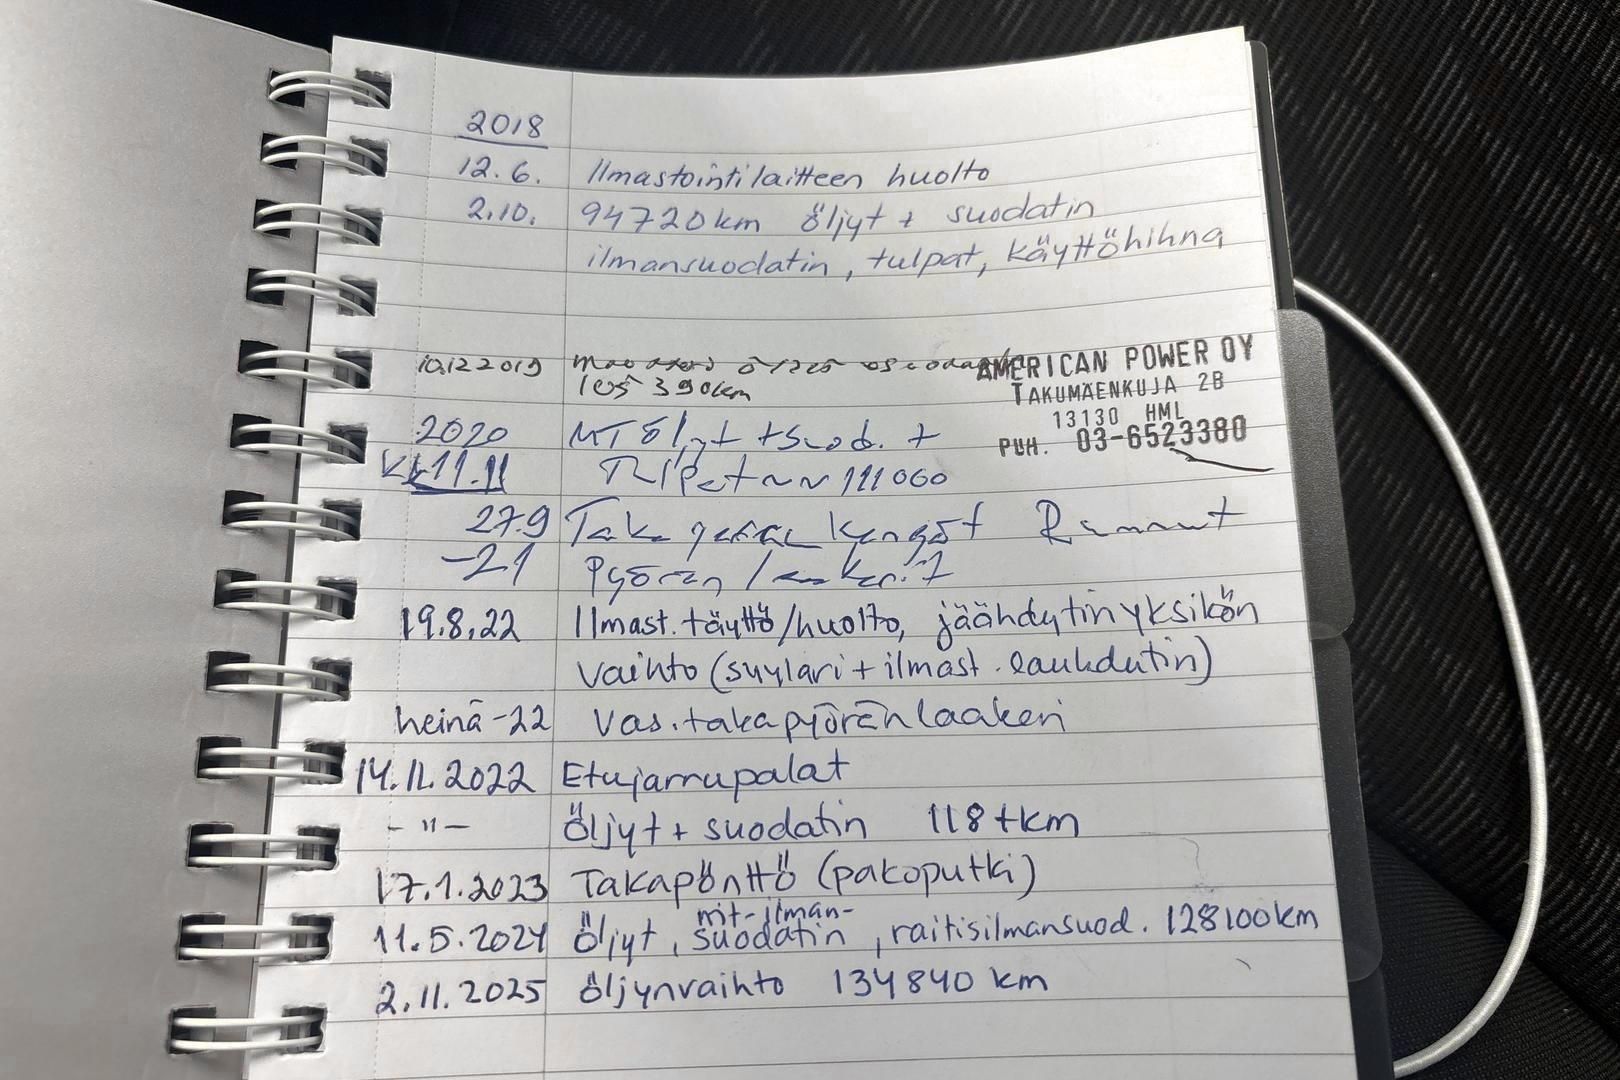 2018
12.6. Ilmastointilaitteen huolto
2.10. 94720km öljyt + suodatin
ilmansuodatin, tulpat, käyttöhihna
10.12 2019
105 390km
AMERICAN POWER OY
TAKUMÄENKUJA 2B
13130 HML
PUH. 03-6523380
2020 MT Öljyt + suod. +
11.11 111060
27.9 Taka kengät
-21 Pyörän
19.8.22 Ilmast. täyttö/huolto, jäähdytinyksikön
vaihto (syylari + ilmast. lauhdutin)
heinä -22 Vas. takapyörän laakeri
14.11.2022 Etujarrupalat
- " - Öljyt + suodatin 118 tkm
17.1.2023 Takapönttö (pakoputki)
mit-ilman-
11.5.2024 Öljyt, suodatin, raitisilmansuod. 128100km
2.11.2025 öljynvaihto 134840 km